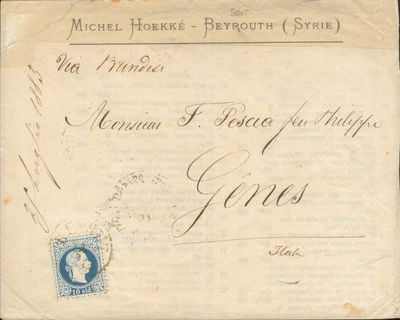 50.-
MICHEL HOEKKÉ - BEYROUTH (SYRIE)
Via Brindisi
Monsieur F. Pescia feu Philippe
Gênes
Italie
luglio
10 sld